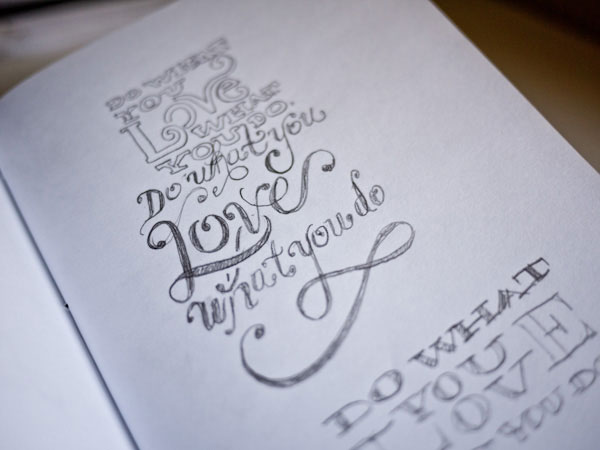 DO WHAT
YOU
Love
WHAT
YOU DO.
Do what you
Love
what you do
DO WHAT
YOU
LOVE
YOU DO